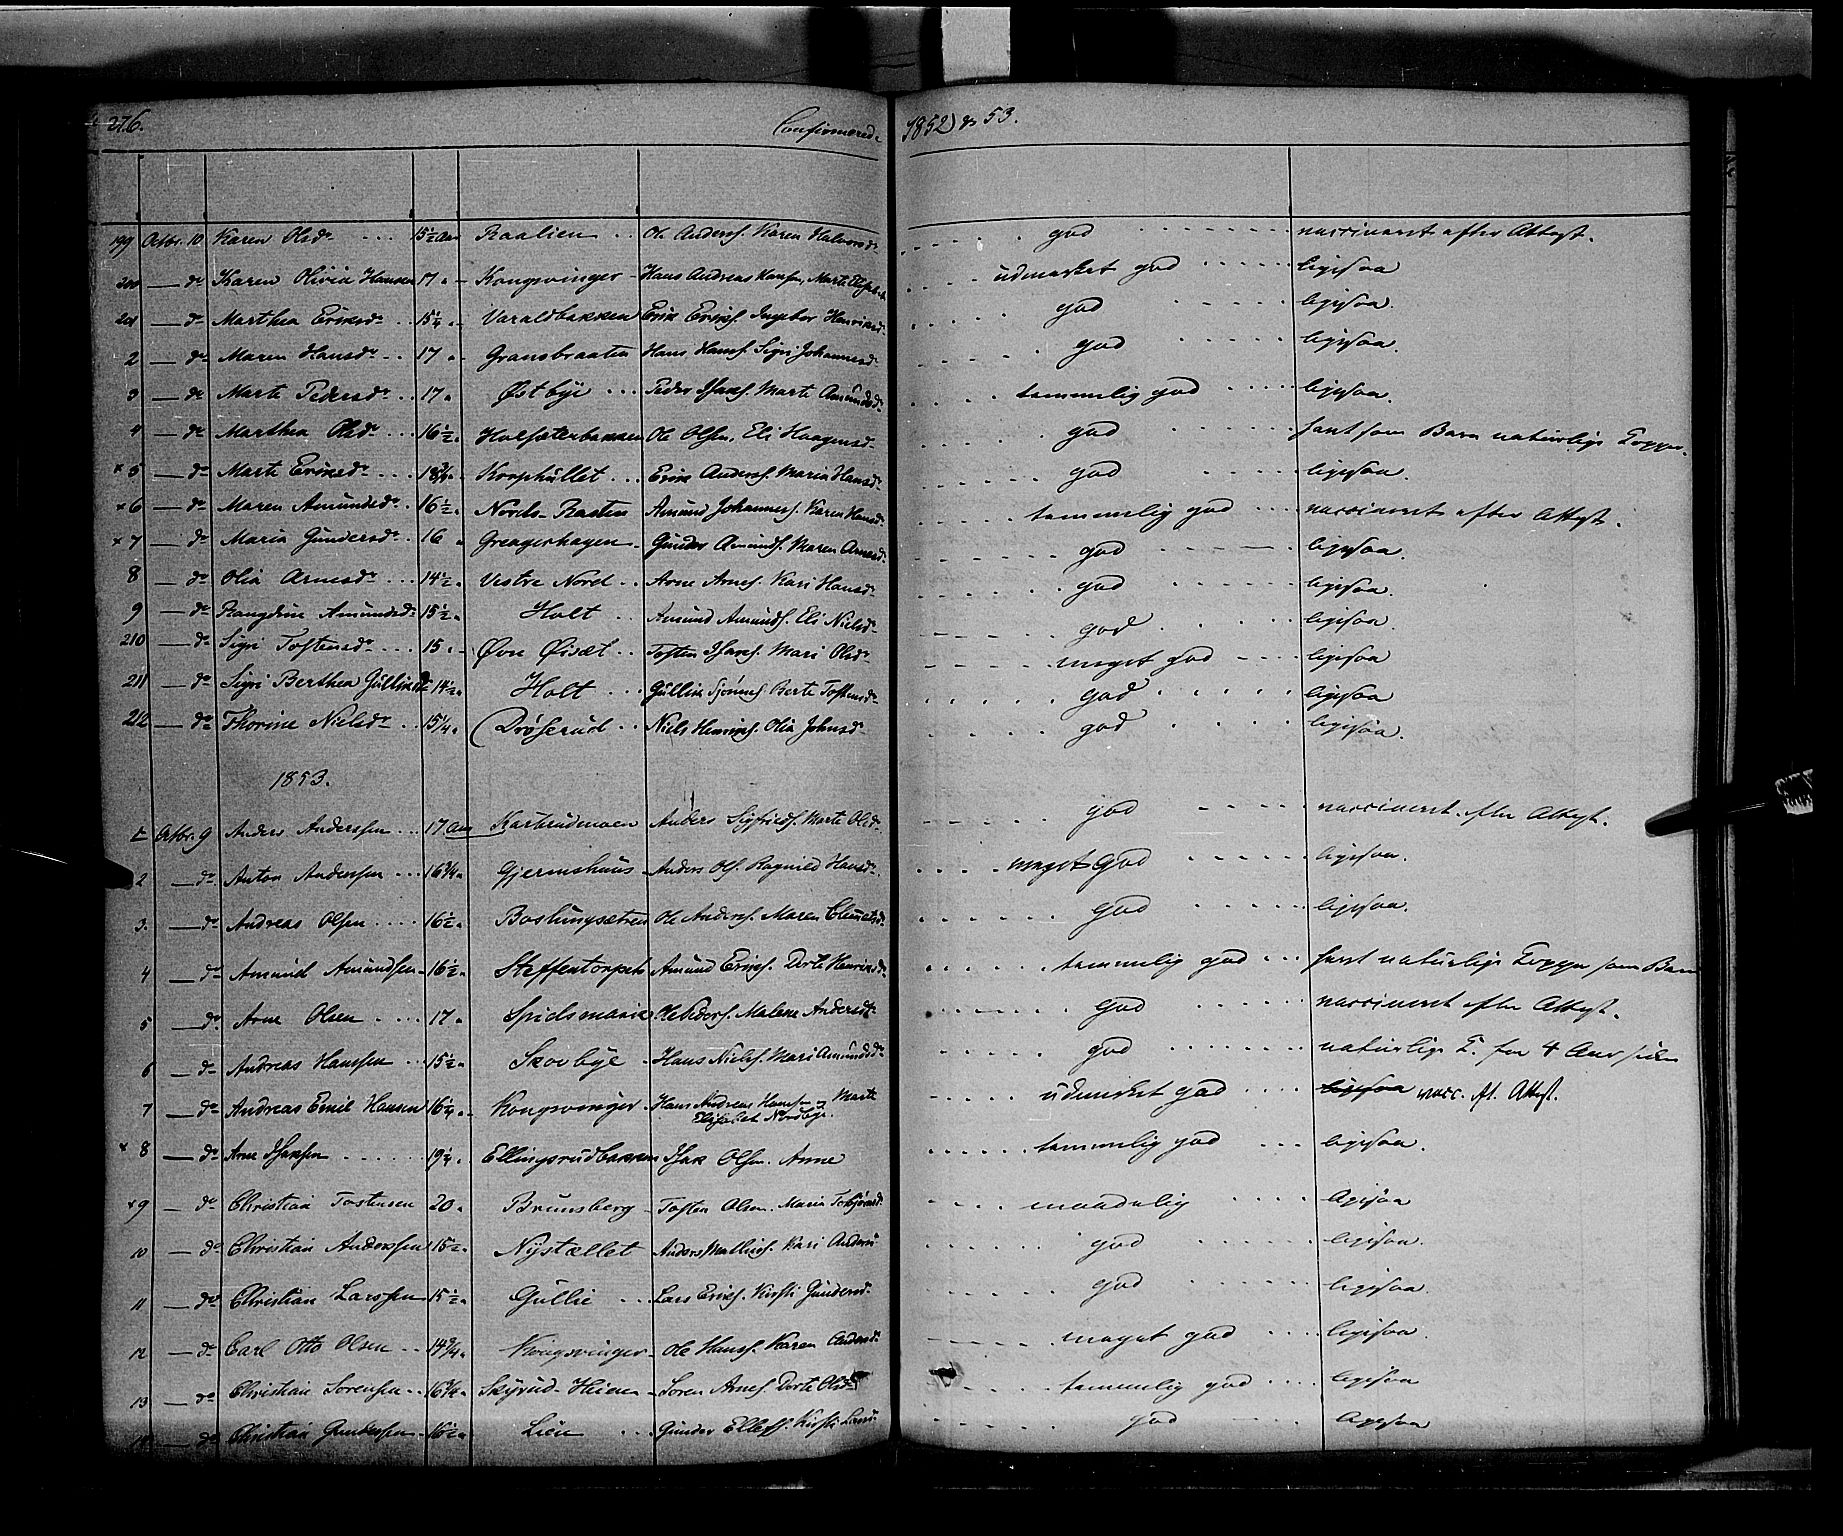 276. Confirmerede 1852 & 53.
199 Octbr. 10 Karen Olsdr 15½ Aar Raalien Ole Anders. Karen Halvorsdr god vaccineret efter Attest.
200 — do Karen Olivia Hansen 17 " Kongsvinger Hans Andreas Hansen, Marte udmærket god ligesaa
201 — do Marthea Eriksdr 15¼ " Varaldbakken Erik Eriks. Ingebor Henriksdr god ligesaa.
2 — do Maren Hansdr 17 " Gransbraaten Hans Hans. Sigri Johannesdr god ligesaa.
3 — do Marte Pedersdr 17 " Østbye Peder Isaks. Marte Amundsdr temmelig god ligesaa.
4 — do Marthea Olsdr 16½ " Holsæterbakken Ole Olsen, Eli Haagensdr god havt som Barn naturlige Kopper.
× 5 — do Marte Eriksdr 18¾ " Korphüllet Erik Anders. Maria Hansdr god ligesaa.
× 6 — do Maren Amundsdr 16½ " Nords-Rasten Amund Johannes. Karen Hansdr temmelig god vaccineret efter Attest.
× 7 — do Maria Gundersdr 16 " Grengerhagen Gunder Amunds. Maren Arnesdr god ligesaa.
8 — do Olia Arnesdr 14½ " Vestre Nord Arne Arnes. Kari Hansdr god ligesaa.
9 — do Rangdine Amundsdr 15½ " Holt Amund Amunds. Eli Nielsdr god ligesaa.
210 — do Sigri Tostensdr 15 " Øvre Øisæt Tosten Isaks. Mari Olsdr meget god ligesaa
211 — do Sigri Berthea Gulliksdr 14½ " Holt Gullik Berte Tostensdr god ligesaa
212 — do Thorine Nielsdr 15¼ " Drøserud Niels Henriks. Olia Johnsdr god ligesaa.
1853.
1 Octbr. 9 Anders Anderssen 17 Aar Karbrudmoen Anders Sigfrids. Marte Olsdr god vaccineret efter Attest.
2 — do Anton Anderssen 16¾ " Gjermshuus Anders Ols. Ragnild Hansdr. meget god ligesaa.
3. — do Andreas Olsen 16½ " Baslungsætren Ole Anders. Maren Clemetsdr god ligesaa.
4 — do Amund Amundsen 16½ " Steffentorpet Amund Eriks. Dorte Henriksdr temmelig god havt naturlige Kopper som Barn
5 — do Arne Olsen 17 " Spidsmarie Ole Peders. Malene Andersdr god vaccineret efter Attest.
6 — do Andreas Hanssen 15½ " Skovbye Hans Niels. Mari Amundsdr god naturlige K. for 4 Aar siden
7 — do Andreas Emil Hansen 16¼ " Kongsvinger Hans Andreas Hansen og Marte Elisabet Nordbye. udmerket god ligesaa vacc. ft. Attest.
× 8 — do Arne Isaksen 19¼ " Ellingsrudbakken Isak Olsen. Anne temmelig god ligesaa.
× 9 — do Christian Tostensen 20 " Brunsberg Tosten Olsen. Maria Torbjørnsdr maadelig ligesaa
10 — do Christian Anderssen 15½ " Nystællet Anders Mathis. Kari Andersd god ligesaa.
11 — do Christian Larssen 15½ " Gullie Lars Eriks. Kirsti Gundersd. god ligesaa.
12 — do Carl Otto Olsen 14¾ " Kongsvinger Ole Hans. Karen Andersdr meget god ligesaa.
13 — do Christian Sorensen 16¾ " Skyrud-Heien Soren Arnes. Dorte Olsdr temmelig god ligesaa
14 — do Christian Gunderssen 16½ " Lien Gunder Ellefs. Kirsti god ligesaa